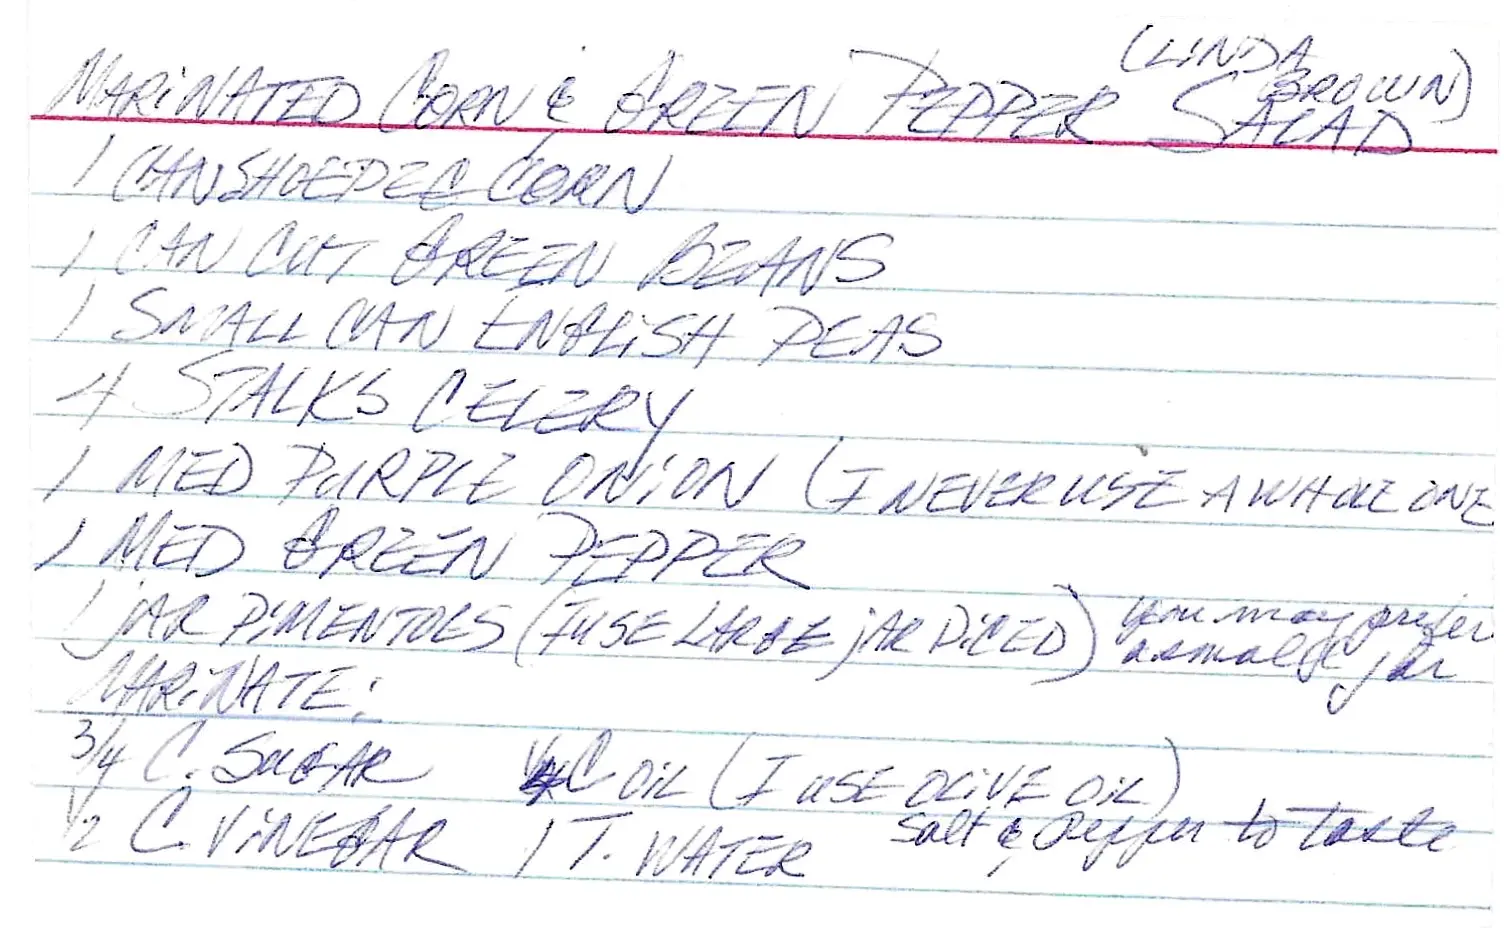 (LINDA
BROWN)
MARINATED CORN & GREEN PEPPER SALAD
1 CAN SHOEPEG CORN
1 CAN CUT GREEN BEANS
1 SMALL CAN ENGLISH PEAS
4 STALKS CELERY
1 MED PURPLE ONION (I NEVER USE A WHOLE ONE
1 MED GREEN PEPPER
1 jAR PIMENTOES (I USE LARGE jAR DICED) you may prefer
a smaller jar
MARINATE:
3/4 C. SUGAR C OIL (I USE OLIVE OIL)
1/2 C. VINEGAR 1 T. WATER Salt & Pepper to taste